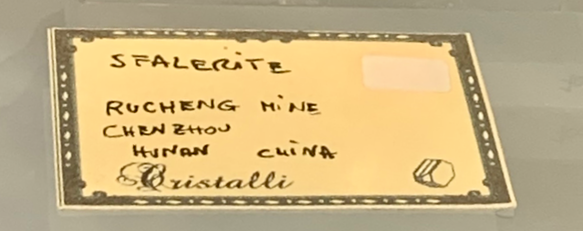 SFALERiTE
RUCHENG MiNE
CHENZHOU
HUNAN CHiNA
Cristalli